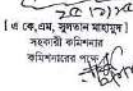 [ এ কে,এম, সুলতান মাহামুদ ]
সহকারী কমিশনার
কমিশনারের পক্ষে